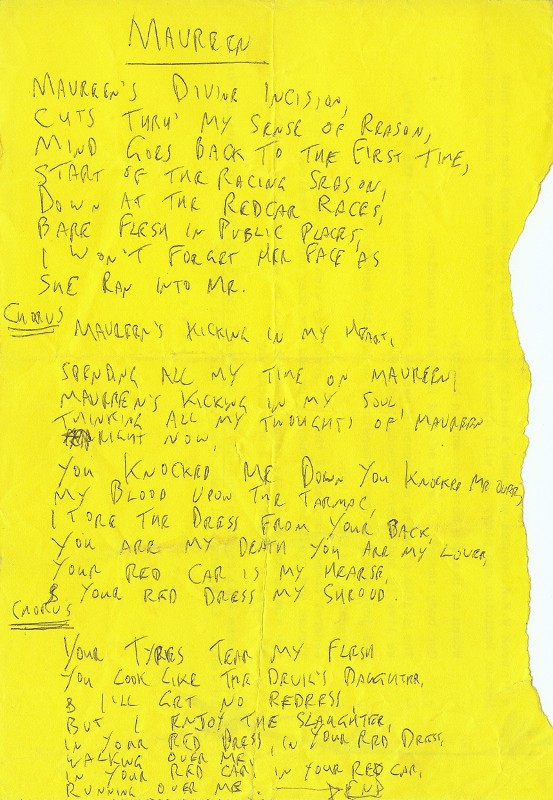 MAUREEN
MAUREEN'S DIVINE INCISION,
CUTS THRU' MY SENSE OF REASON,
MIND GOES BACK TO THE FIRST TIME,
START OF THE RACING SEASON,
DOWN AT THE REDCAR RACES,
BARE FLESH IN PUBLIC PLACES,
I WON'T FORGET HER FACE AS
SHE RAN INTO ME.
CHORUS
MAUREEN'S KICKING IN MY HEART,
SPENDING ALL MY TIME ON MAUREEN,
MAUREEN'S KICKING IN MY SOUL
THINKING ALL MY THOUGHTS OF MAUREEN
RIGHT NOW,
YOU KNOCKED ME DOWN YOU KNOCKED ME OVER,
MY BLOOD UPON THE TARMAC,
I TORE THE DRESS FROM YOUR BACK,
YOU ARE MY DEATH YOU ARE MY LOVER,
YOUR RED CAR IS MY HEARSE,
& YOUR RED DRESS MY SHROUD.
CHORUS
YOUR TYRES TEAR MY FLESH
YOU LOOK LIKE THE DEVIL'S DAUGHTER,
& I'LL GET NO REDRESS,
BUT I ENJOY THE SLAUGHTER,
IN YOUR RED DRESS, IN YOUR RED DRESS,
WALKING OVER ME,
IN YOUR RED CAR, IN YOUR RED CAR,
RUNNING OVER ME. → END